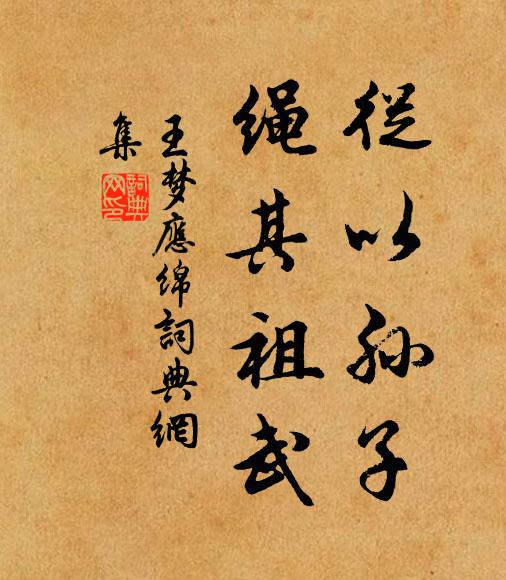 從以孙子
绳其祖武
王梦應绵詞典網
集
詞典网印